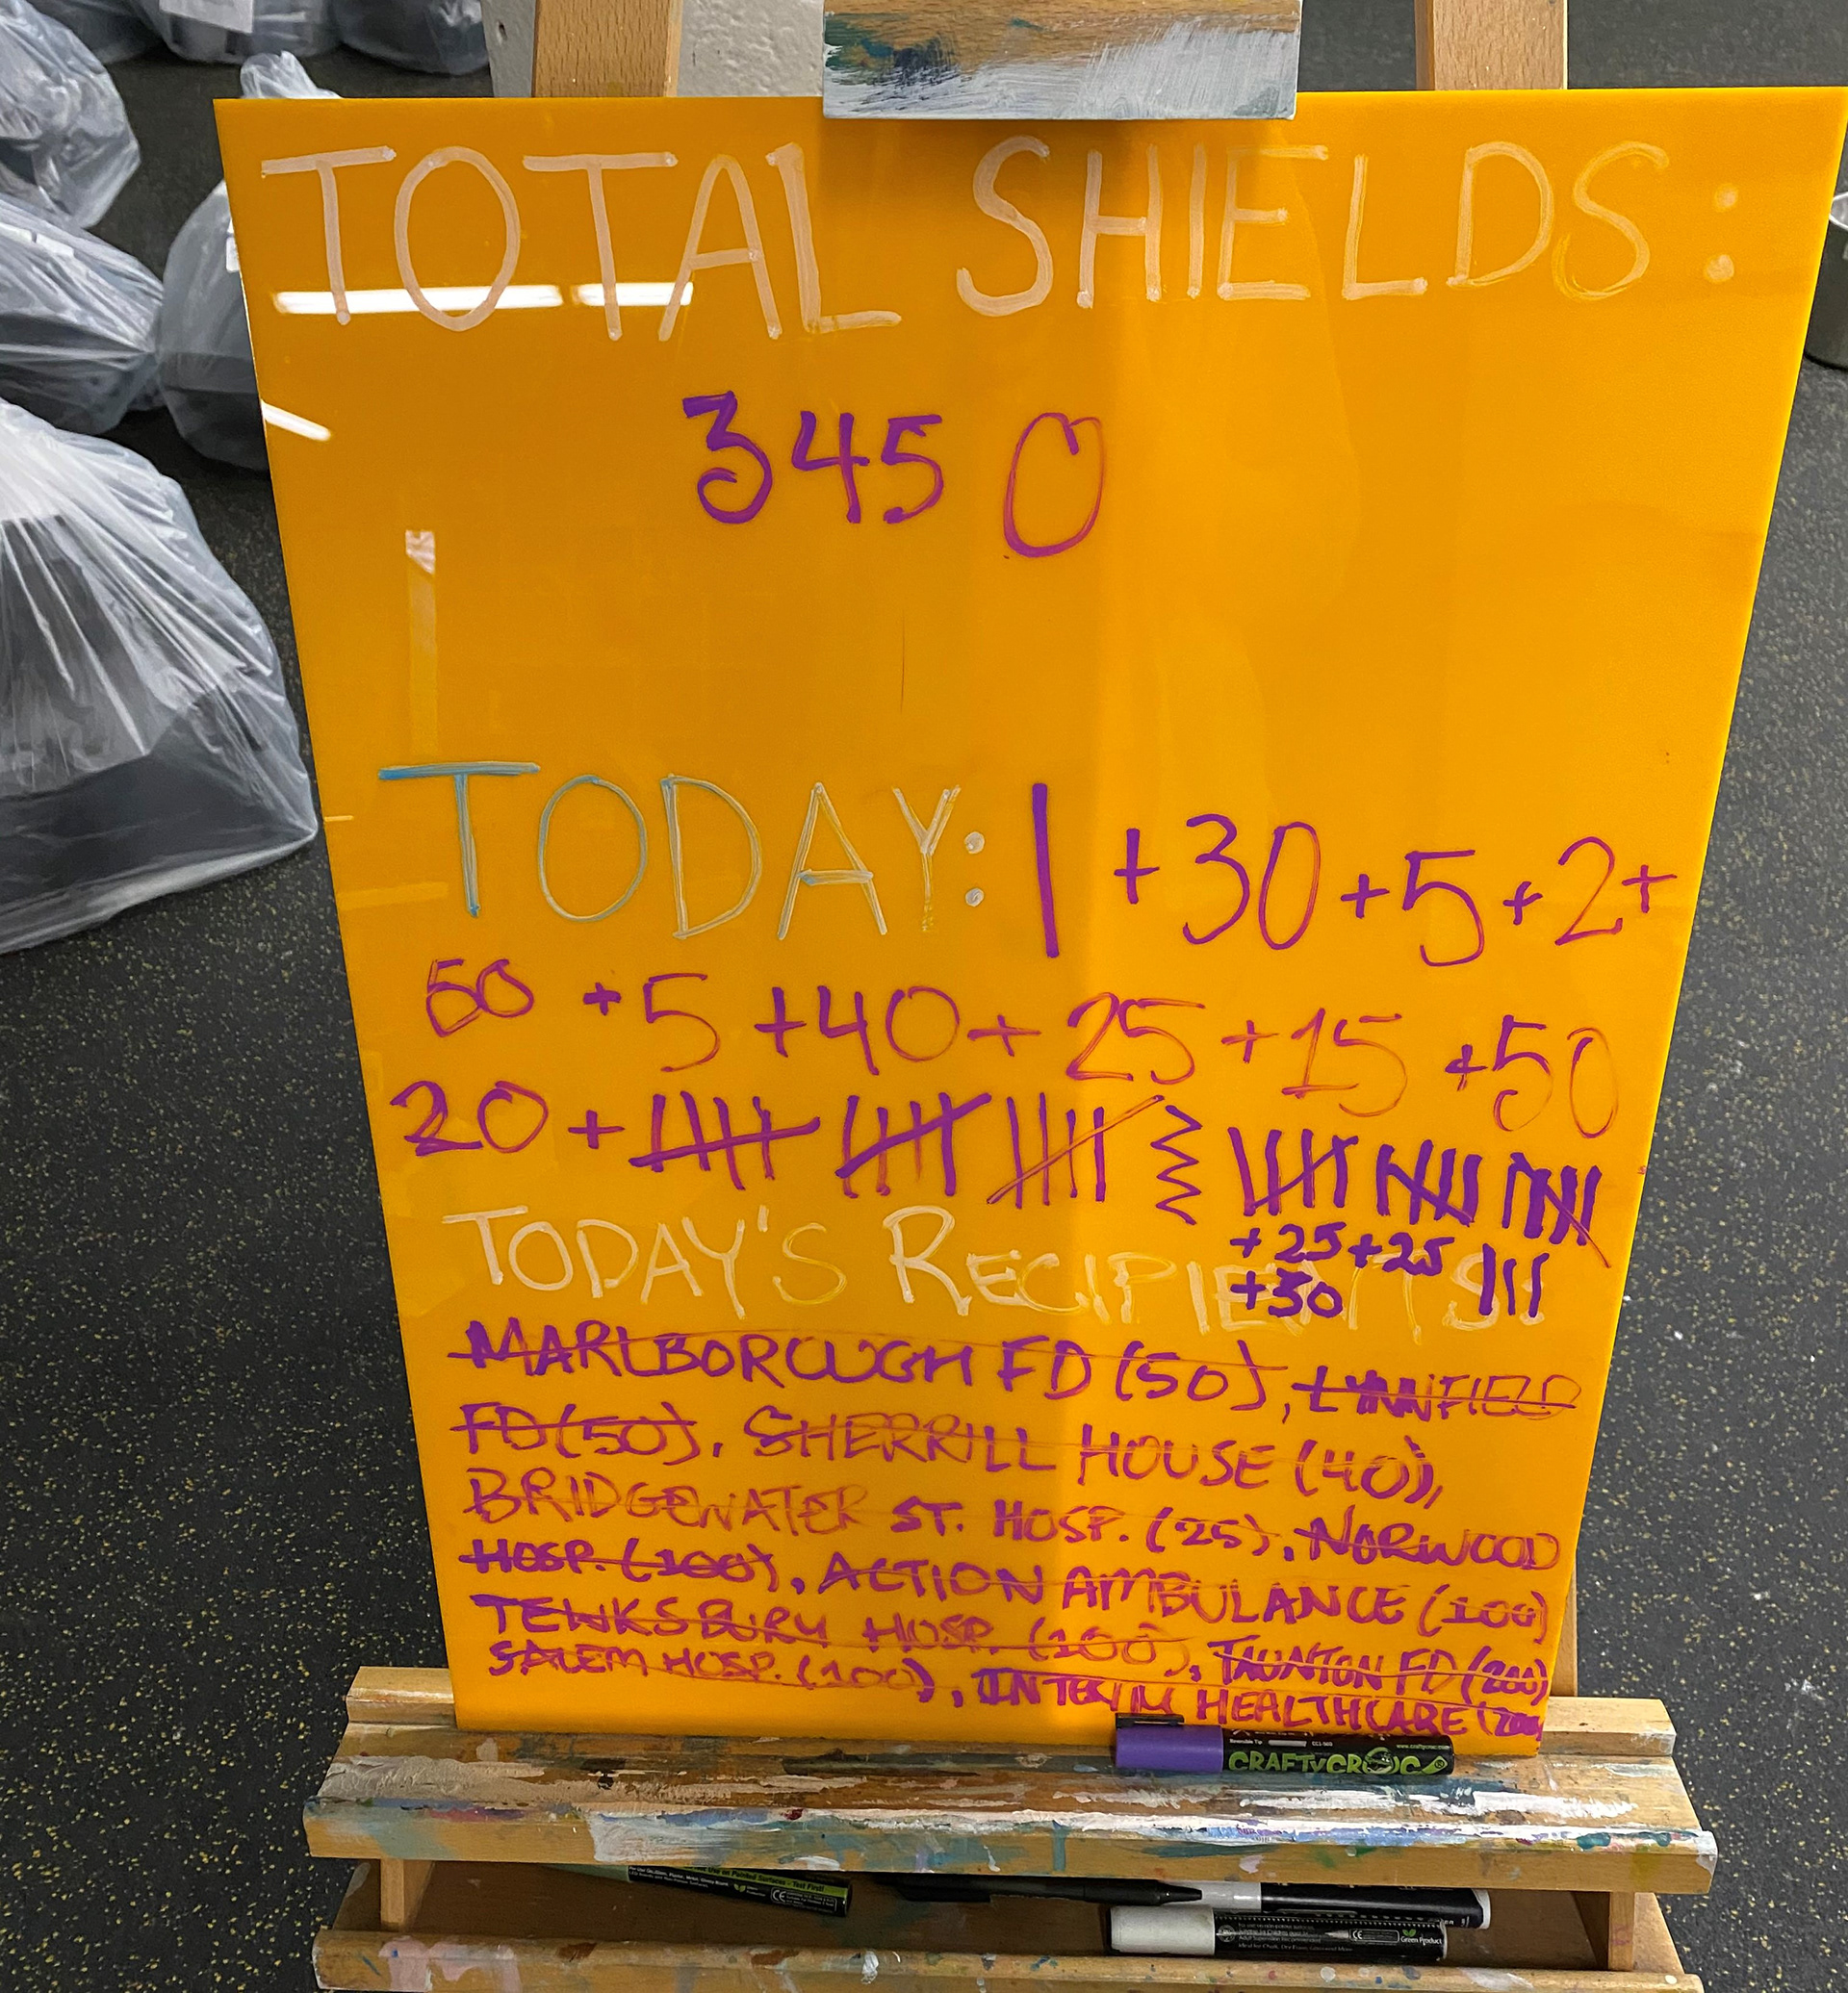 TOTAL SHIELDS:
3450
TODAY: 1 + 30 + 5 + 2 +
50 + 5 + 40 + 25 + 15 + 50
20 +
+ 25 + 25
TODAY'S RECIPIENTS:
+ 50
MARLBOROUGH FD (50), LYNNFIELD
FD (50), SHERRILL HOUSE (40),
BRIDGEWATER ST. HOSP. (25), NORWOOD
HOSP. (100), ACTION AMBULANCE (100)
TEWKSBURY HOSP. (100), TAUNTON FD (200)
SALEM HOSP. (100), INTERIM HEALTHCARE
CRAFTYCROC
Green Product